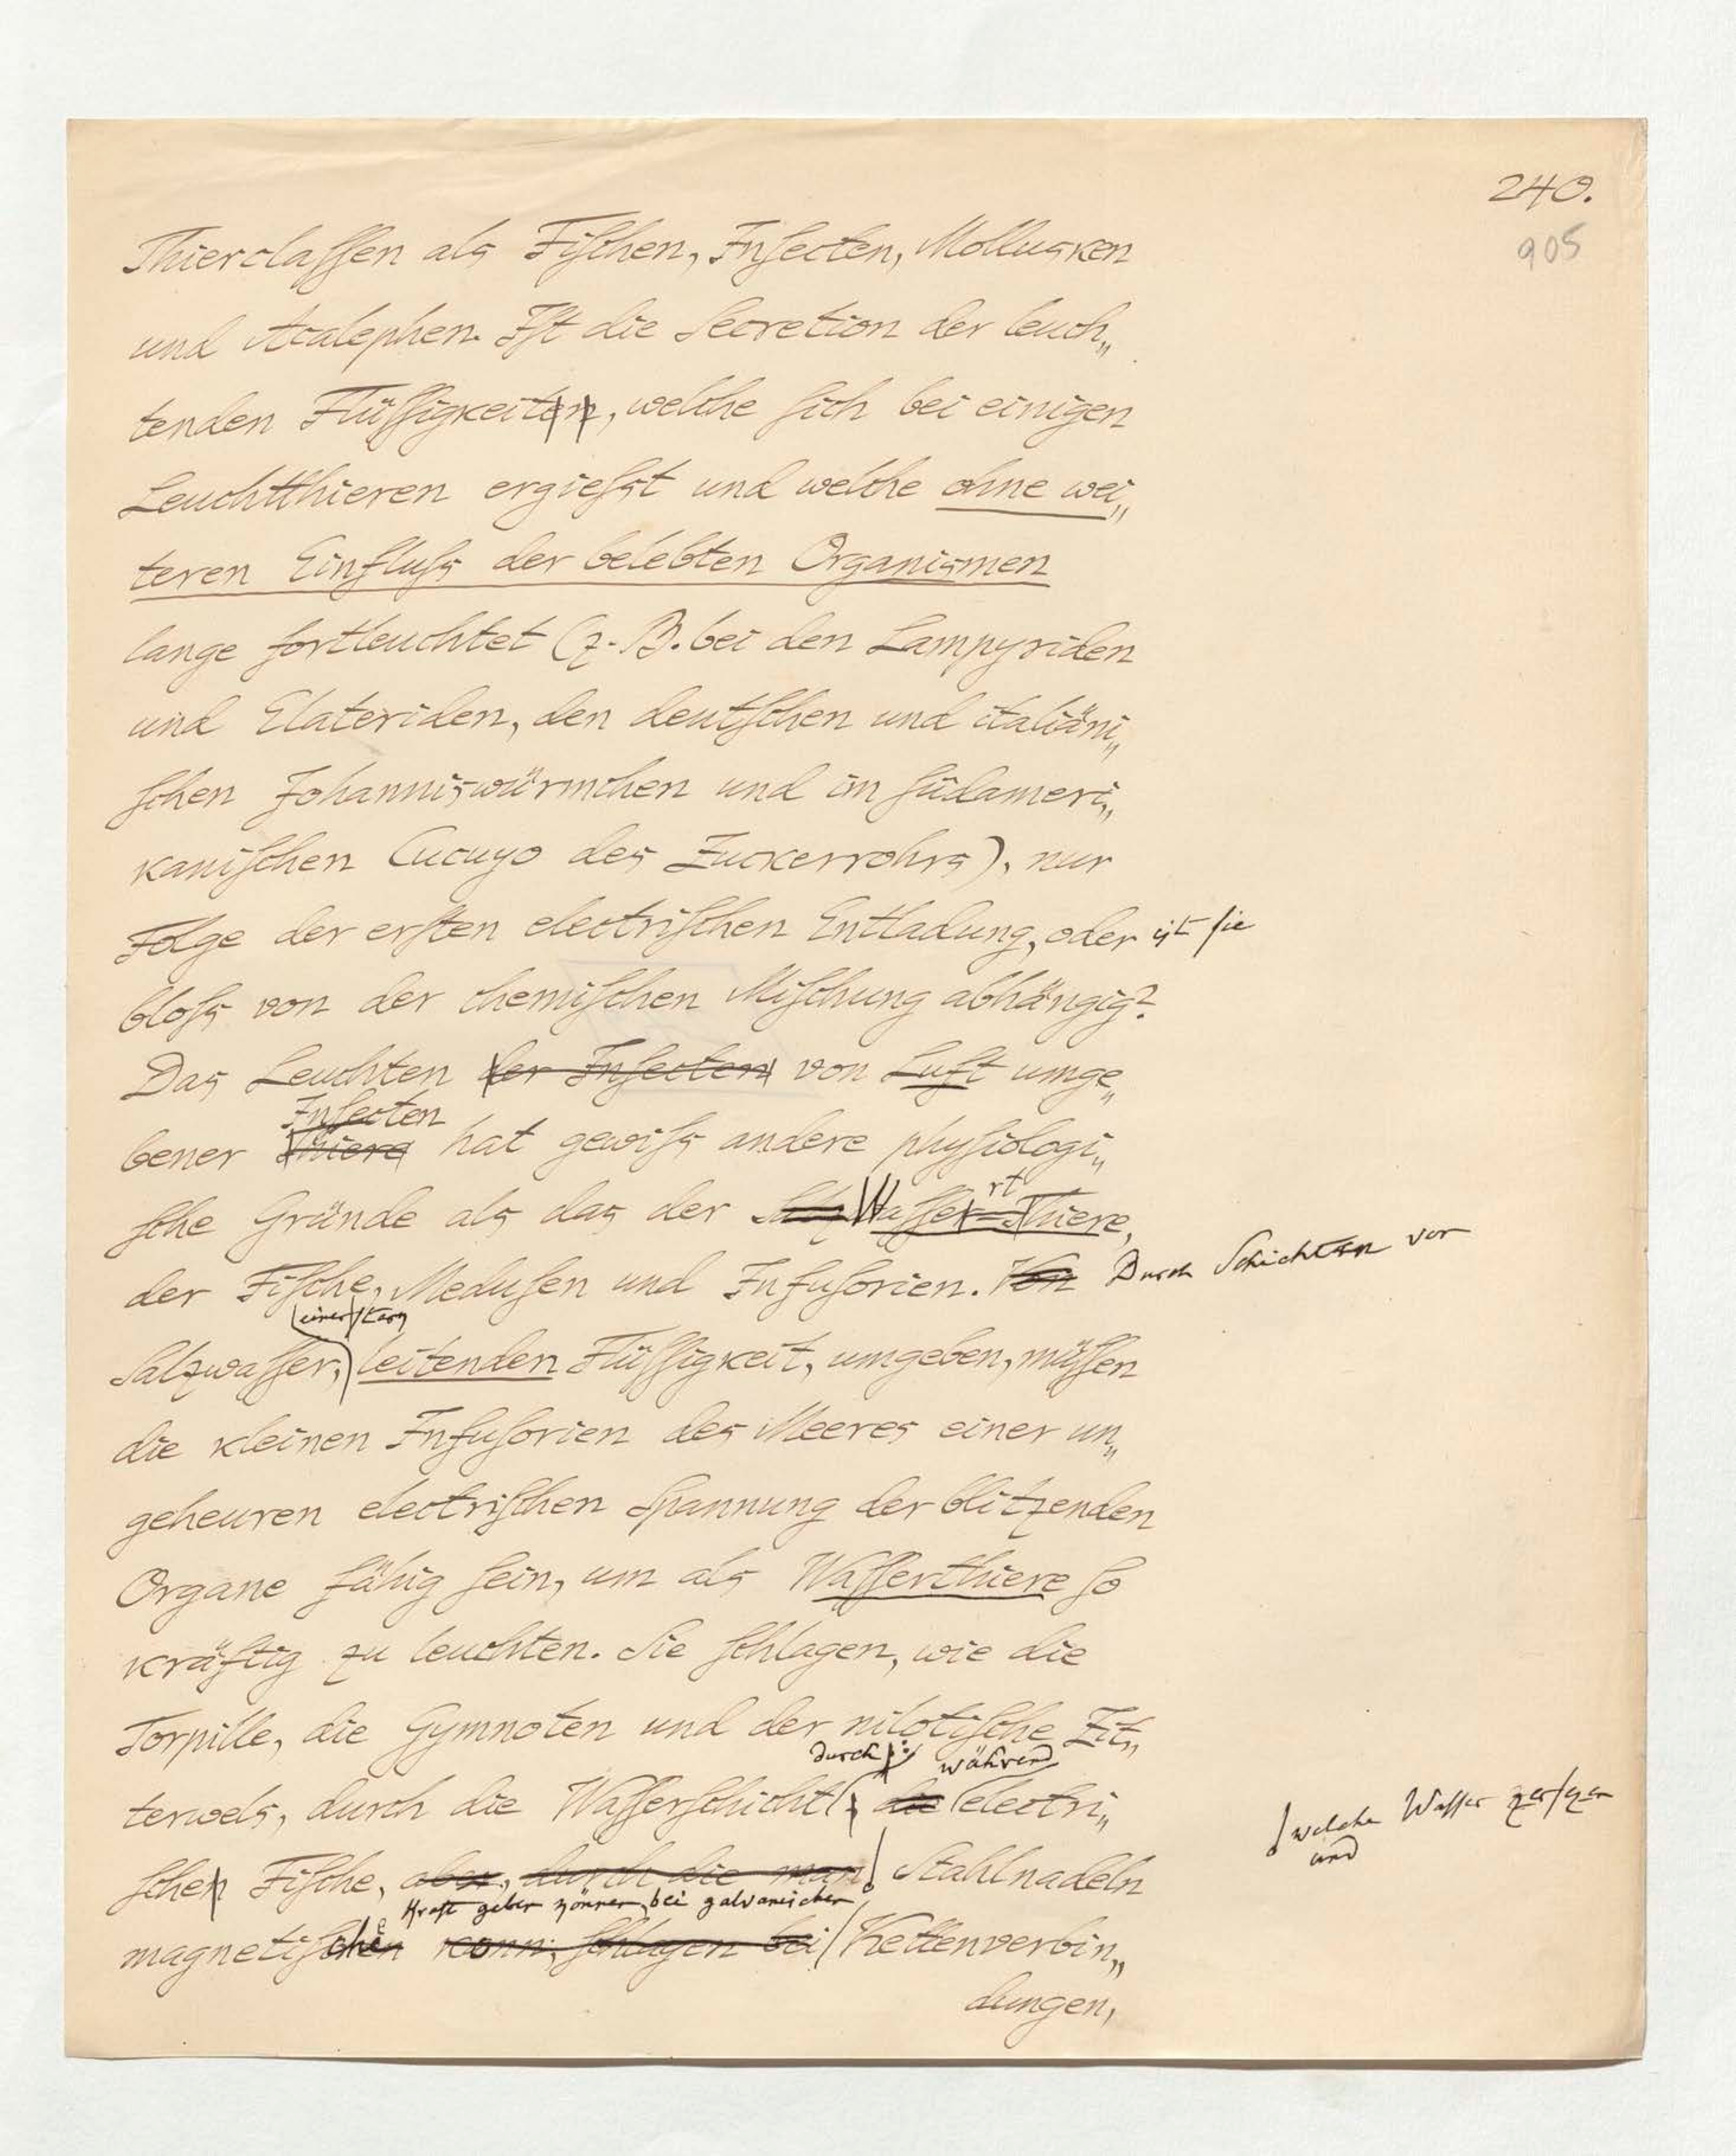 240.
905
Thierclassen als Fischen, Insecten, Mollusken
und Acalephen. Ist die Secretion der leuch„
tenden Flüssigkeiten, welche sich bei einigen
Leuchtthieren ergiesst und welche ohne wei„
teren Einfluss der belebten Organismen
lange fortleuchtet (z. B. bei den Lampyriden
und Elateriden, den deutschen und italiäni„
schen Johanniswürmchen und im südameri„
kanischen Cucuyo des Zuckerrohrs), nur
Folge der ersten electrischen Entladung, oder ist sie
bloss von der chemischen Mischung abhängig?
Das Leuchten der Insecten von Luft umge„
Insecten
bener Thiere hat gewiss andere physiologi„
rt
sche Gründe als das der Salz Wasser=Thiere,
der Fische, Medusen und Infusorien. Von Durch Schichten von
einer stark
Salzwasser, leitenden Flüssigkeit, umgeben, müssen
die kleinen Infusorien des Meeres einer un„
geheuren electrischen Spannung der blitzenden
Organe fähig sein, um als Wasserthiere so
kräftig zu leuchten. Sie schlagen, wie die
Torpille, die Gymnoten und der nilotische Zit„
durch; während
terwels, durch die Wasserschicht, die electri„
welche Wasser zersezen
und
schen Fische, aber, durch die man Stahlnadeln
Kraft geben können, bei galvanischer
magnetischen kann, schlagen bei Kettenverbin„
dungen,